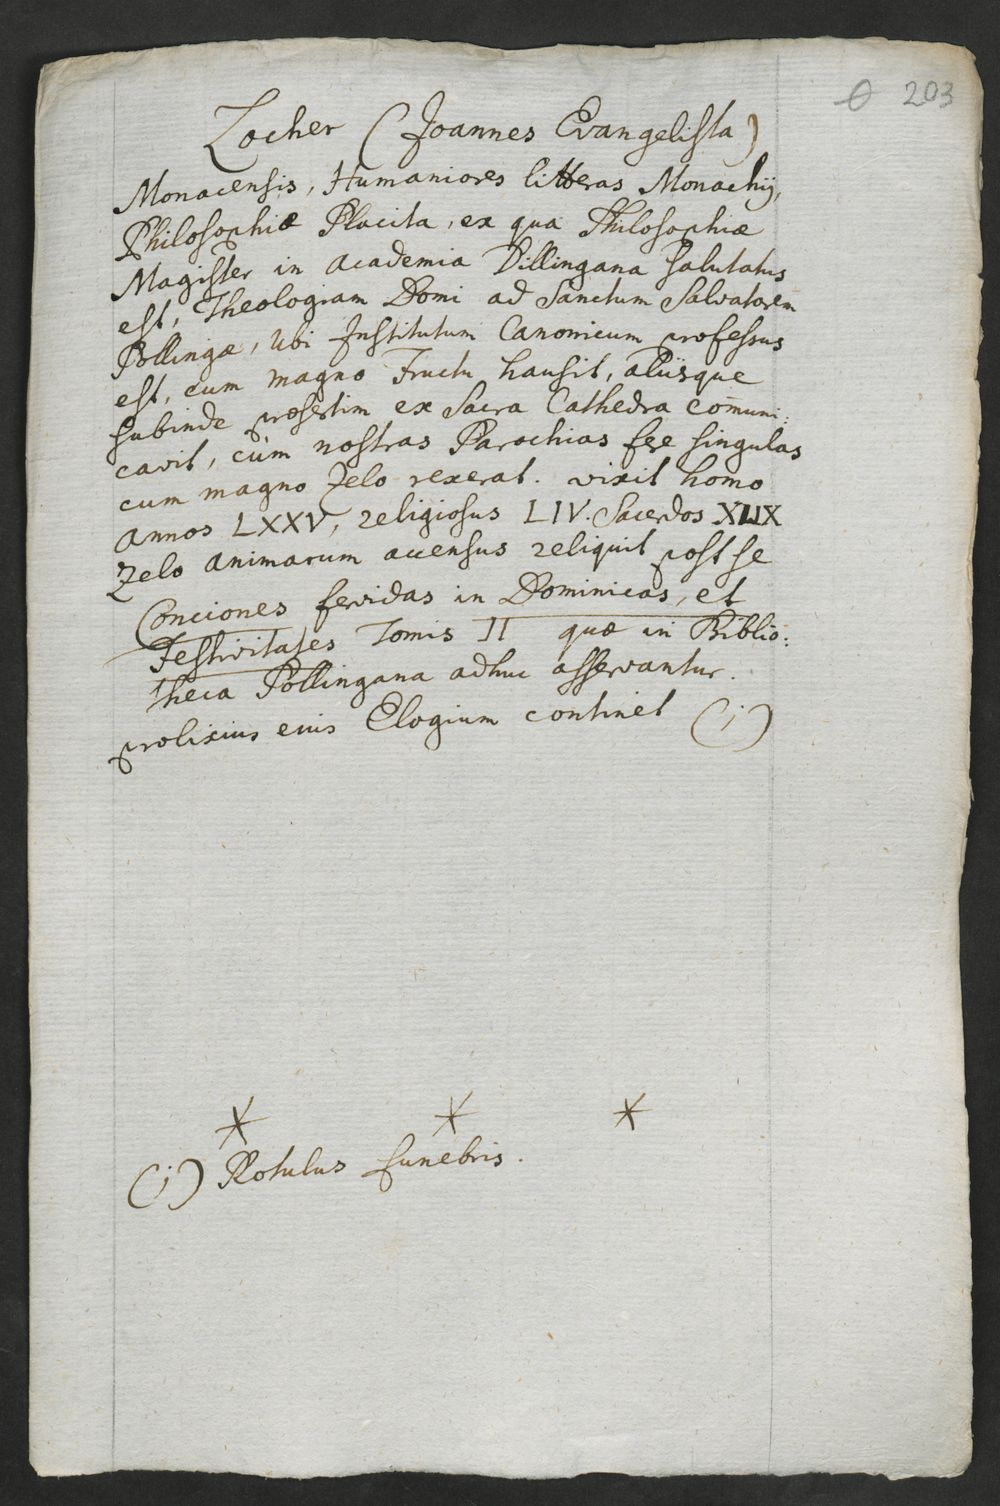 203
Zocher (Joannes Evangelista)
Monacensis, Humaniores litteras Monachij,
Philosophiæ Placita, ex qua Philosophiæ
Magister in academia Dillingana salutatus
est, Theologiam Domi ad Sanctum Salvatorem
Pollingæ, Ubi Institutum Canonicum professus
est, cum magno Fructu hausit, aliisque
subinde præsertim ex Sacra Cathedra com̄uni:
cavit, cùm nostras Parochias fere singulas
cum magno Zelo rexerat. vixit homo
annos LXXV, religiosus LIV. Sacerdos
Zelo animarum accensus reliquit post se
Conciones fervidas in Dominicas, et
Festivitates Tomis II quæ in Biblio:
theca Pollingana adhuc asservantur.
prolixius eius Elogium continet (i)
(i) Rotulus funebris.